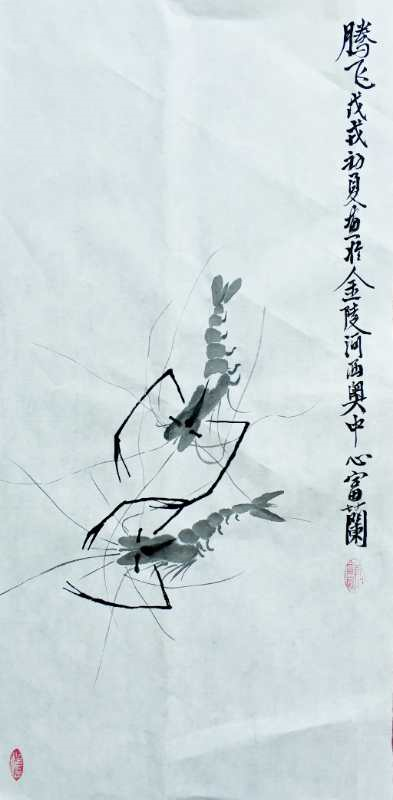 腾飞戊戌初夏画於金陵河西奥中心富蘭